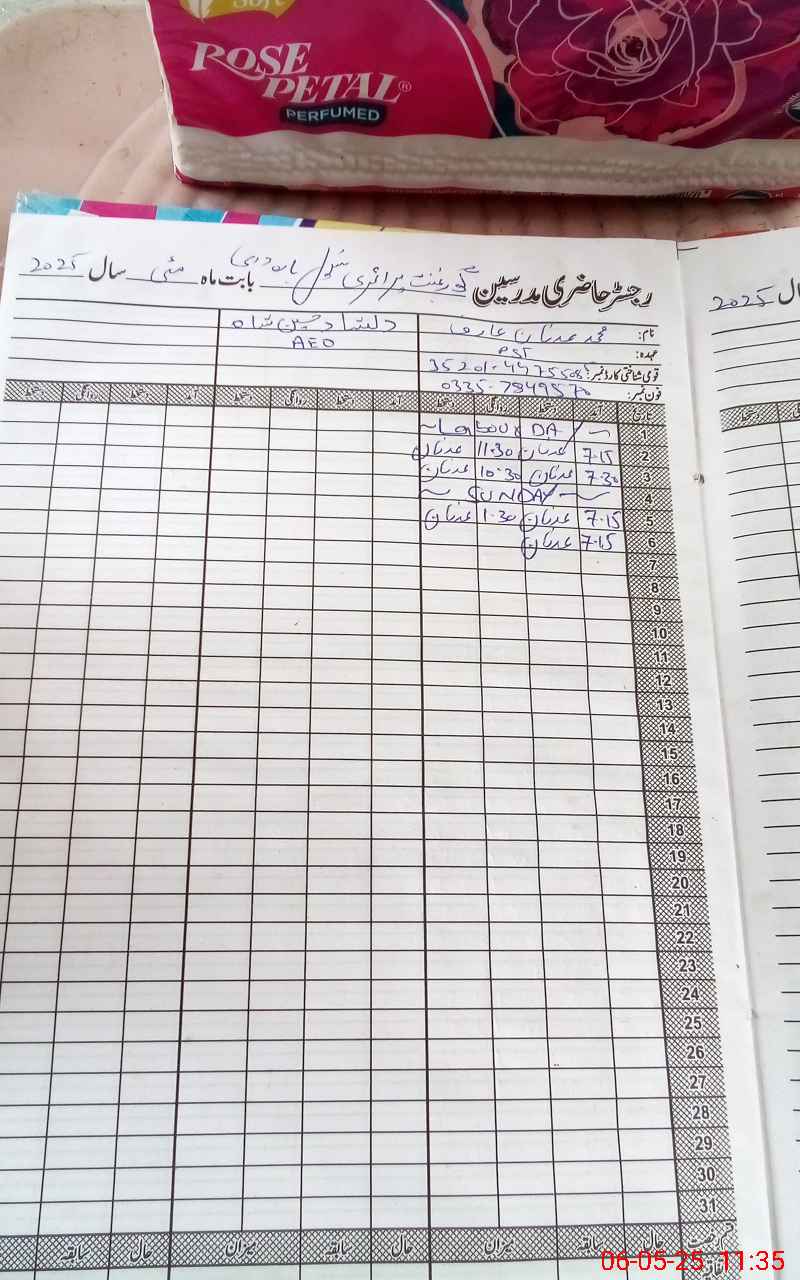 Soft
ROSE PETAL®
PERFUMED
رجسٹر حاضری مدرسین گورنمنٹ پرائمری سکول بابت ماہ مئی سال 2025
سال 2025
نام: محمد عدنان عارف دلشاد حسین شاہ
عہدہ: PST AEO
قومی شناختی کارڈ نمبر:
فون نمبر: 0335-7849570
تاریخ آمد دستخط روانگی دستخط آمد دستخط روانگی دستخط آمد دستخط روانگی دستخط
1 ~ Labour DAY ~
2 7.15 عدنان 11.30 عدنان
3 7.30 عدنان 10.30 عدنان
4 ~ SUNDAY ~
5 7.15 عدنان 1.30 عدنان
6 7.15 عدنان
7
8
9
10
11
12
13
14
15
16
17
18
19
20
21
22
23
24
25
26
27
28
29
30
31
حال سابقہ میزان حال سابقہ میزان حال سابقہ
06-05-25 11:35